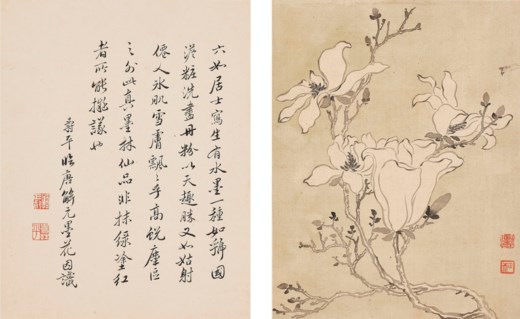 六如居士寫生有水墨一種如虢國
淡粧洗盡丹粉以天趣勝又如姑射
僊人冰肌雪膚飄〻乎高銳塵𡋯
之外此真墨林仙品非抹綠塗紅
者所能擬議也
壽平臨唐解元墨花因識